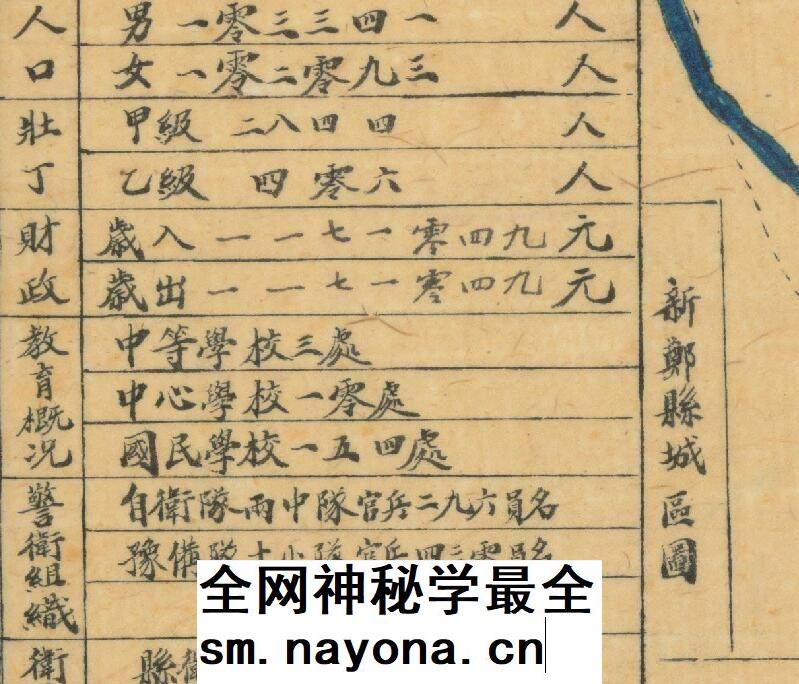 人口
男 一零三三四一 人
女 一零二零九三 人
壯丁
甲級 二八四四 人
乙級 四零六 人
財政
歲入 一一七一零四九 元
歲出 一一七一零四九 元
教育概况
中等學校三處
中心學校一零處
國民學校一五四處
警衛組織
自衛隊兩中隊官兵二九六員名
豫備隊十小隊官兵四三零員名
衛
縣衛
新鄭縣城區圖
全网神秘学最全
sm.nayona.cn